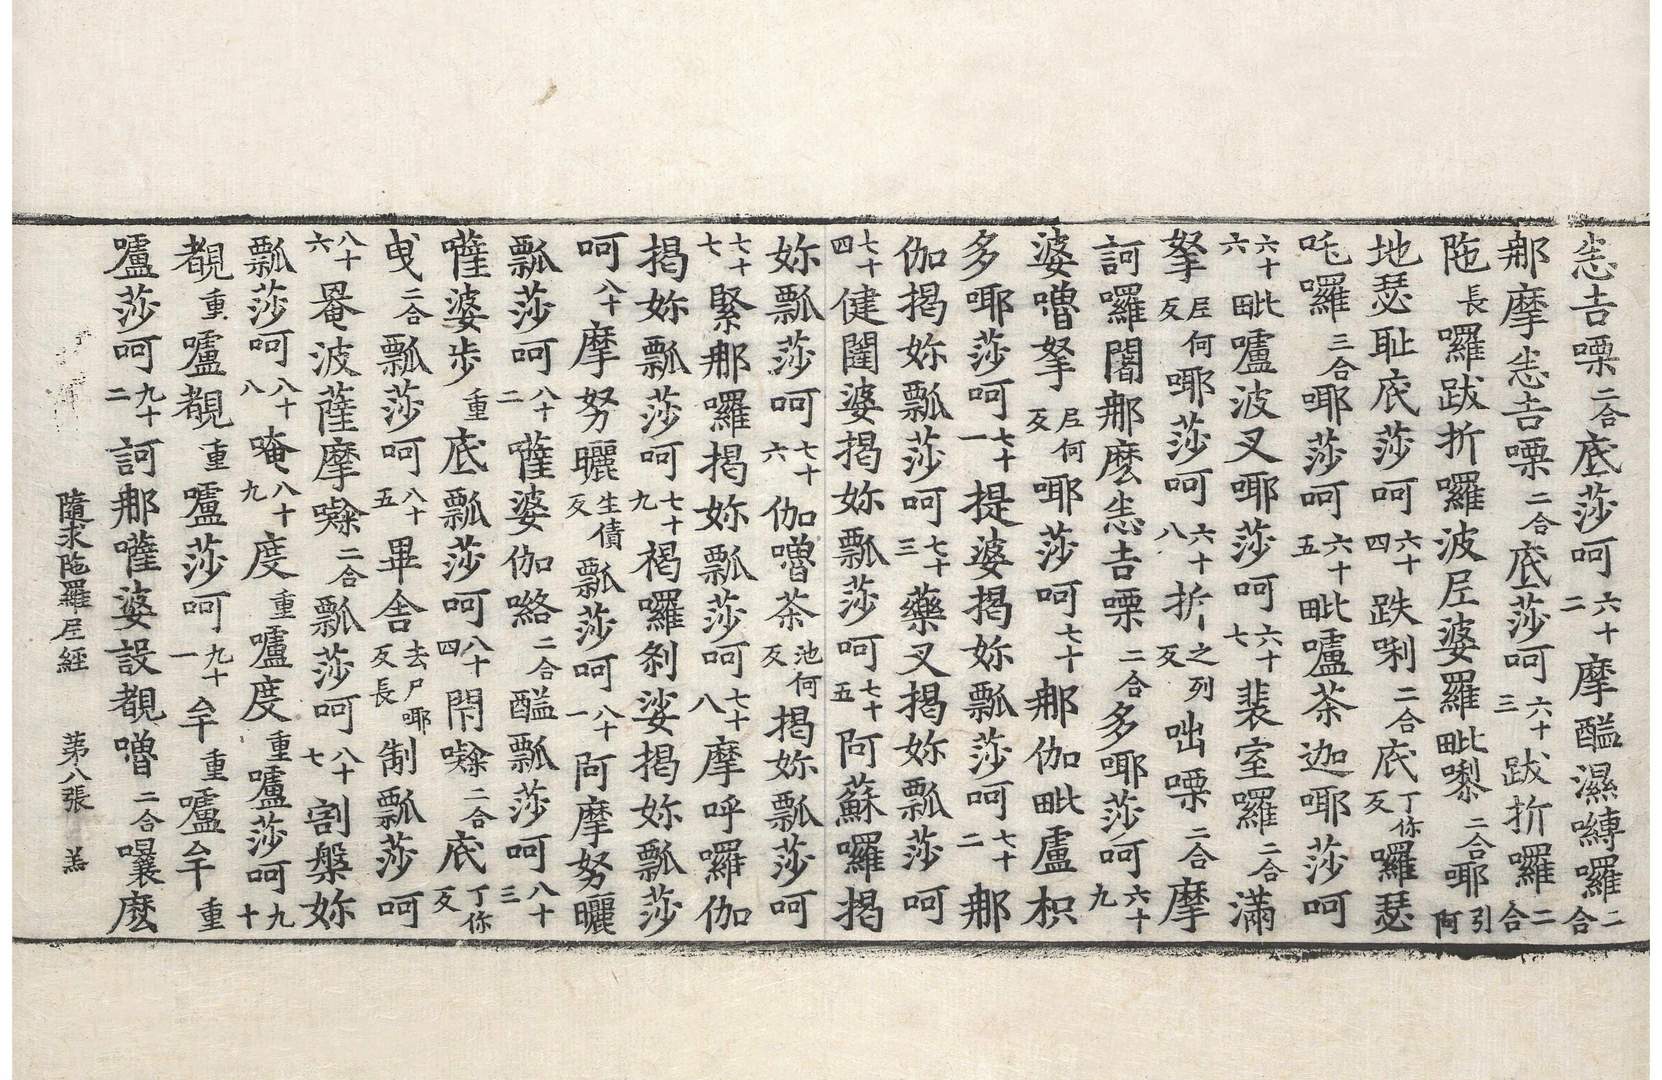 恙吉㗚二合底莎呵六十二摩醯濕嚩囉二合
那摩恙吉㗚二合底莎呵六十三跋折囉二合
陁長囉跋折囉波𡰱婆羅毗嚟二合耶引阿
地瑟耻底莎呵六十四跌唎二合底丁你反囉瑟
吒囉三合耶莎呵六十五毗嚧茶迦耶莎呵
六十六毗嚧波叉耶莎呵六十七裴室囉二合滿
拏𡰱何反耶莎呵六十八折之列反咄㗚二合摩
訶囉闍那麽恙吉㗚二合多耶莎呵六十九
婆嚕拏𡰱何反耶莎呵七十那伽毗盧枳
多耶莎呵七十一提婆揭妳瓢莎呵七十二那
伽揭妳瓢莎呵七十三藥叉揭妳瓢莎呵
七十四健闥婆揭妳瓢莎呵七十五阿蘇羅揭
妳瓢莎呵七十六伽嚕茶池何反揭妳瓢莎呵
七十七緊那囉揭妳瓢莎呵七十八摩呼囉伽
揭妳瓢莎呵七十九褐囉剎娑揭妳瓢莎
呵八十摩努曬生債反瓢莎呵八十一阿摩努曬
瓢莎呵八十二薩婆伽㗉二合醯瓢莎呵八十三
薩婆步重底瓢莎呵八十四閇㘑二合底丁你反
曳二合瓢莎呵八十五畢舍去尸耶反長制瓢莎呵
八十六罨波薩摩㘑二合瓢莎呵八十七割槃妳
瓢莎呵八十八唵八十九度重嚧度重嚧莎呵九十
覩重嚧覩重嚧莎呵九十一牟重嚧牟重
嚧莎呵九十二訶那薩婆設覩嚕二合㘕麽
隨求陁羅𡰱經　第八張　羔